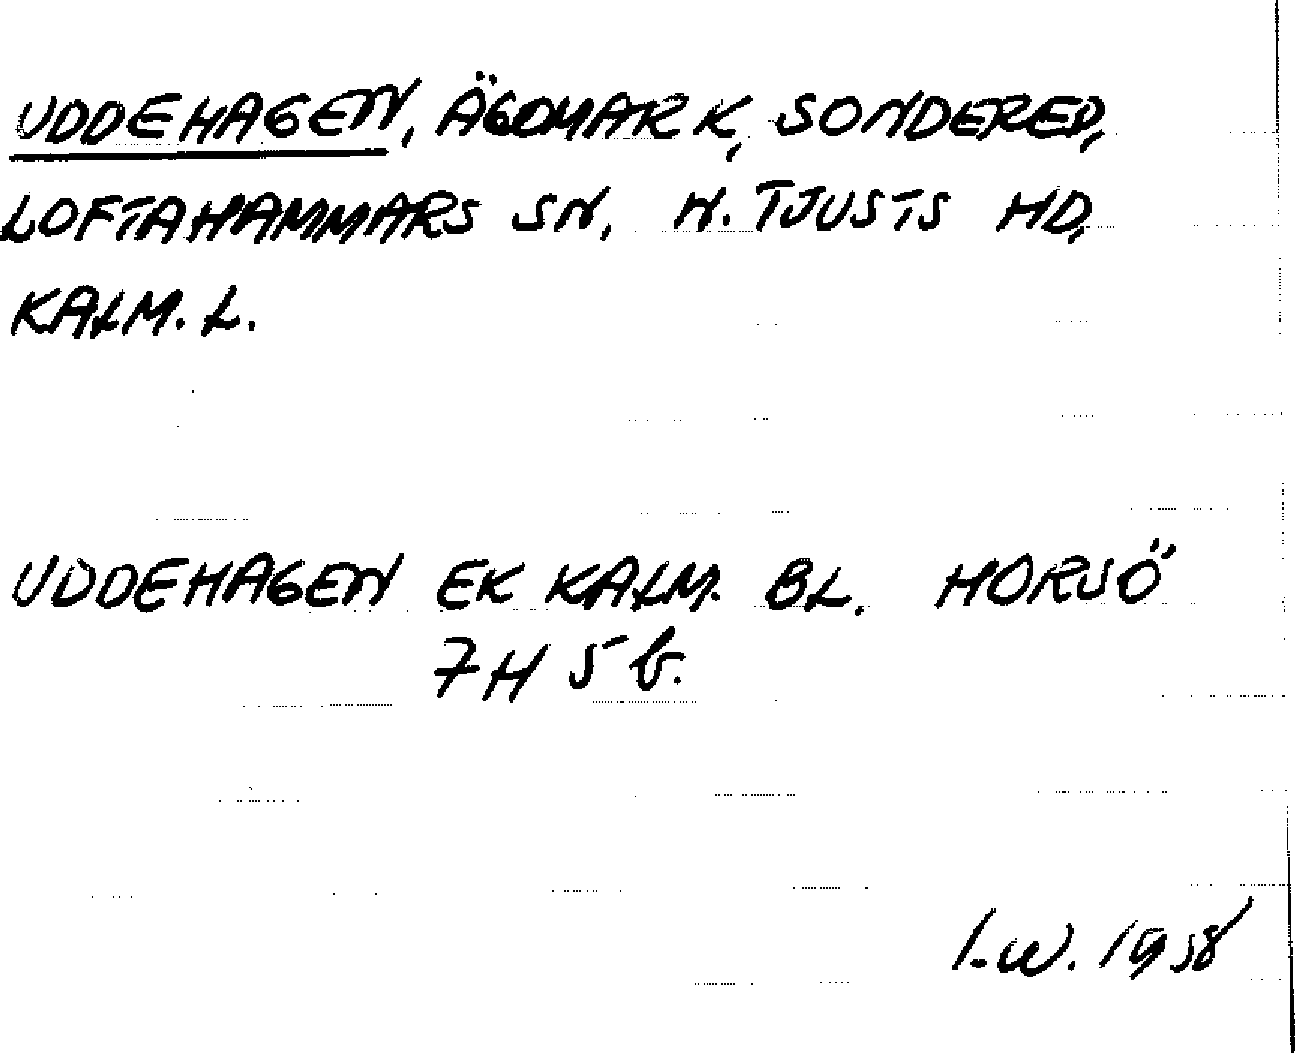 UDDEHAGEN, ÄGOMARK, SONDERED,
LOFTAHAMMARS SN, N. TJUSTS HD,
KALM. L.
UDDEHAGEN EK KALM. BL. HORSÖ
7H 5 b.
I.W. 1958